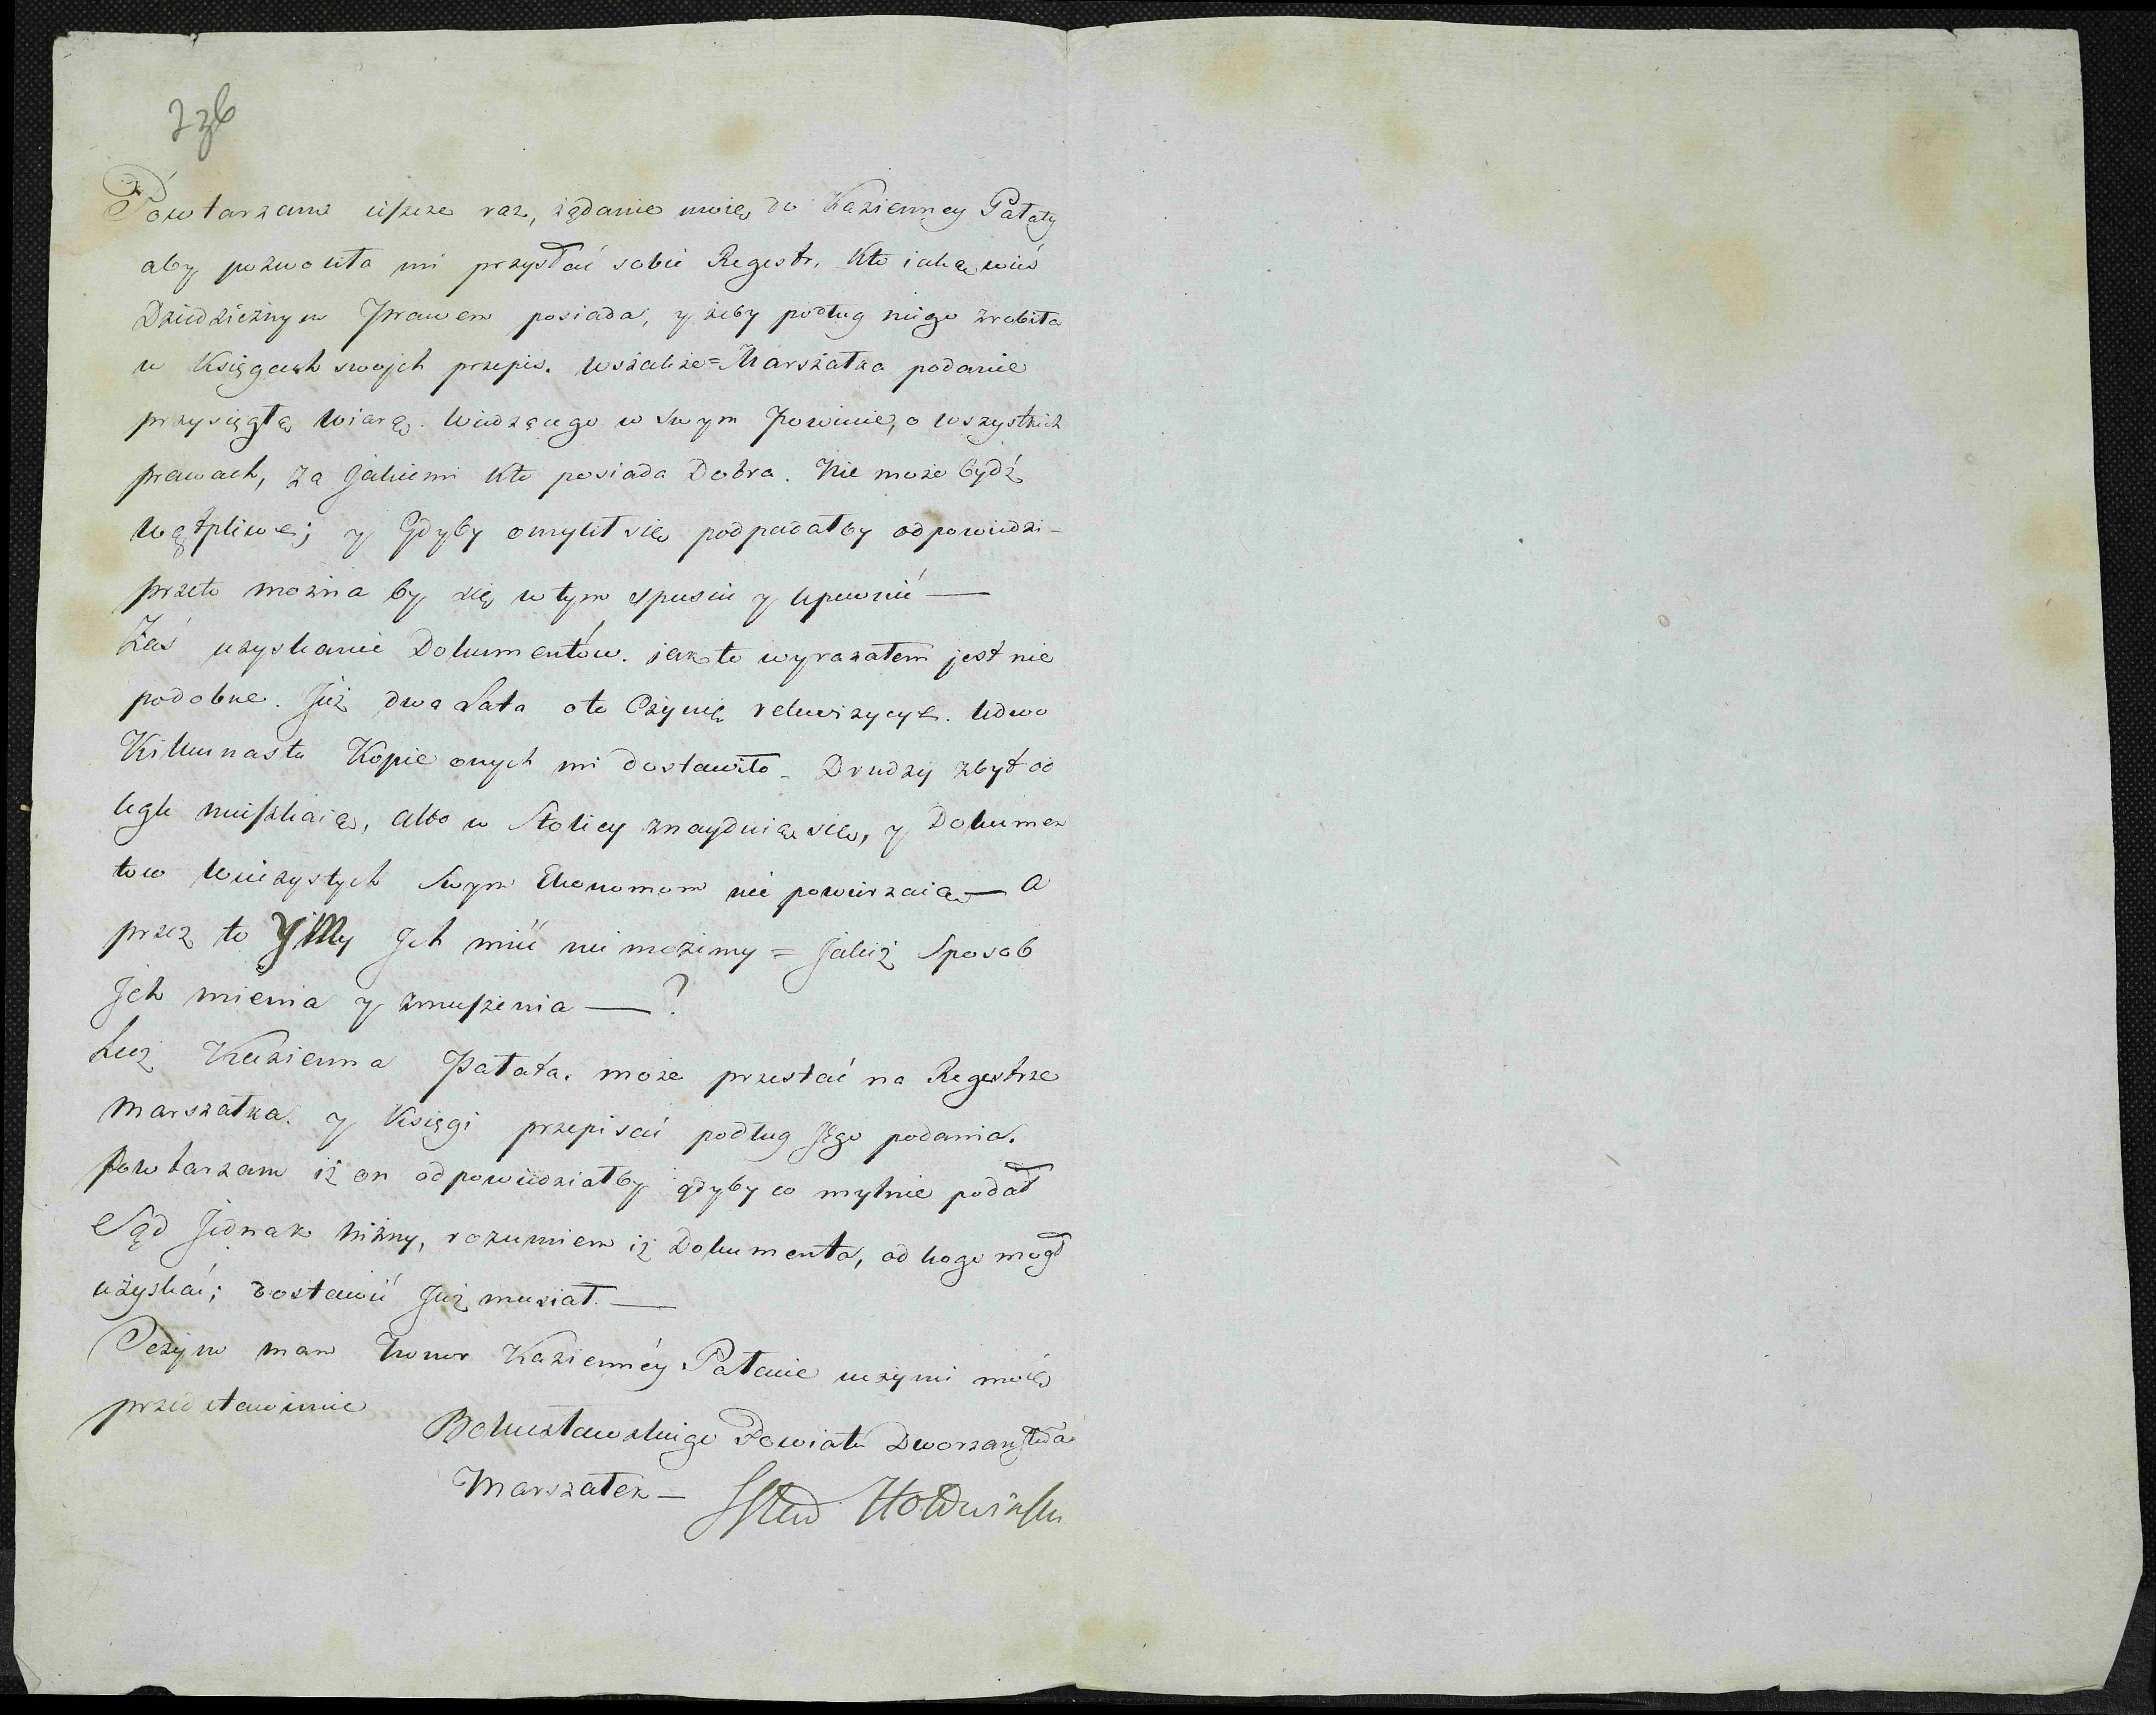 236
Powtarzam ieszcze raz, żądanie moię do Kazienney Pałaty
aby pozwoliła mi przysłać sobie Regestr, Kto iaką wieś
Dziedzicznym Prawem posiada, y żeby podług niego zrobiła
w Księgach swojch przepis. wszakże = Marszałka podanie
przysięgłą wiarą. Wiedzącego w Swym Powiecie, o wszystkich
prawach, za Jakiemi Kto posiada Dobra. Nie może bydź
wątpliwe; y Gdyby omylił się podpadałby odpowiedzi-
przeto można by się w tym spuścić y upewnić —
Zaś uzyskanie Dokumentów. jak to wyrazałem jest nie
podobne. Już dwa Lata oto Czynię rekwizycye. ledwo
Kilkunastu Kopie onych mi dostawiło - Drudzy zbyt od
legle mieszkaią, albo w Stolicy znayduią się, y Dokumen
tow wieczystych Swym Ekonomom nie powierzaią — a
przez to Y My Jch mieć nie możemy = Jakiż Sposob
Jch mienia y zmuszenia — ?
Lecz Kazienna Pałata. może przestać na Regestrze
Marszałka. y Księgi przepisać podług Jego podania.
Powtarzam iż on odpowiedziałby gdyby co mylnie podał
Sąd Jednak niżny, rozumiem iż Dokumenta, od kogo mógł
użyskać; dostawić Już musiał. —
O czym mam honor Kazienney Pałacie uczynić moię
przedstawienie
Bohusławskiego Powiatu Dworzaństwa
Marszałek — Hołowiński